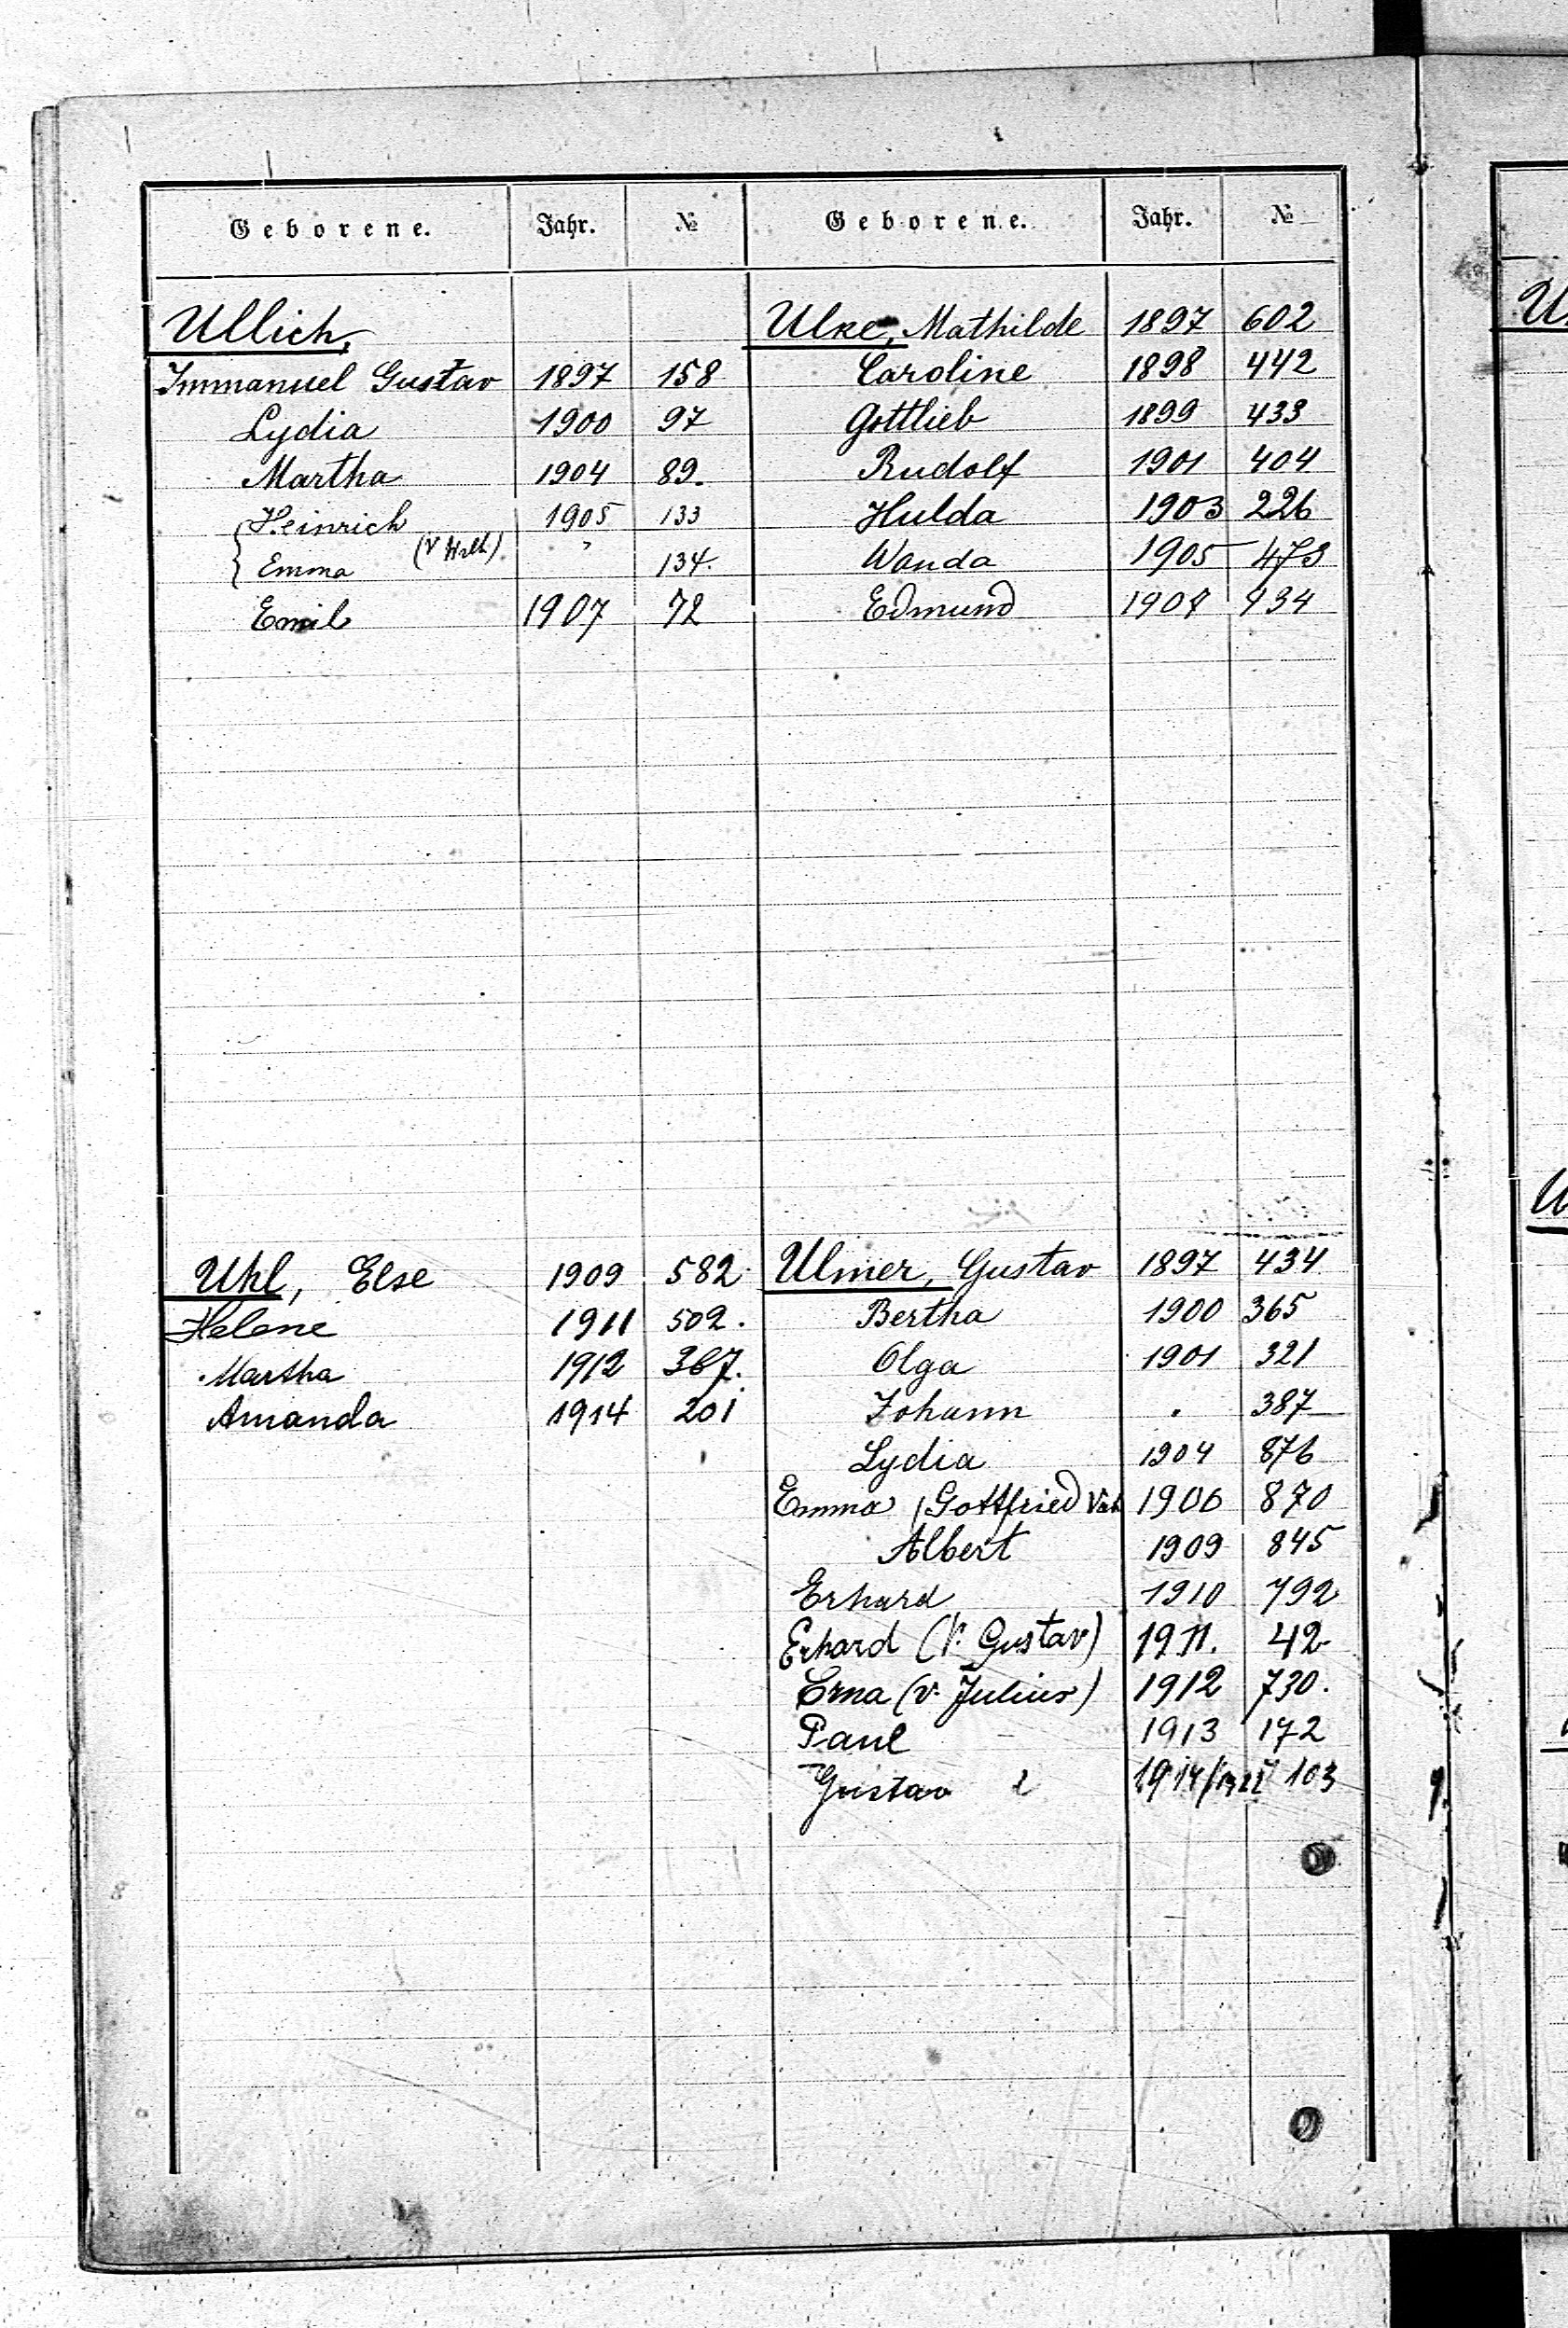 Geborene. Jahr. №
Ullich,
Immanuel Gustav 1897 158
Lydia 1900 97
Martha 1904 89.
Heinrich 1905 133
Emma " 134.
Emil 1907 72
Uhl, Else 1909 582
Helene 1911 502.
Martha 1912 367.
Amanda 1914 201
Geborene. Jahr. №
Ulke, Mathilde 1897 602
Caroline 1898 442
Gottlieb 1899 433
Rudolf 1901 404
Hulda 1903 226
Wanda 1905 473
Edmund 434
Ulmer, Gustav 1897 434
Bertha 1900 365
Olga 1901 321
Johann " 387
Lydia 1904 876
Emma (Gottfried 1906 870
Albert 1909 845
Erhard 1910 792
Erhard (V. Gustav) 1911. 42
Erna (v. Julius) 1912 730.
Paul 1913 172
Gustav 103